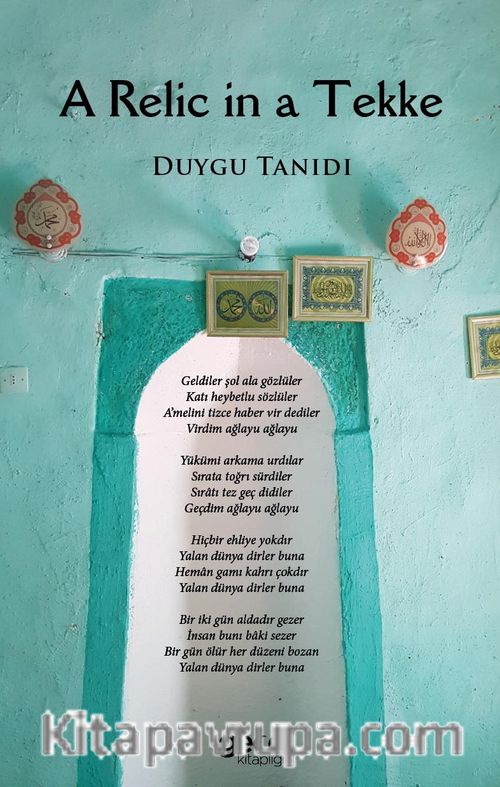 A Relic in a Tekke
Duygu Tanıdı
Geldiler şol ala gözlüler
Katı heybetlu sözlüler
A'melini tizce haber vir dediler
Virdim ağlayu ağlayu
Yükümi arkama urdılar
Sırata toğrı sürdiler
Sırâtı tez geç didiler
Geçdim ağlayu ağlayu
Hiçbir ehliye yokdır
Yalan dünya dirler buna
Hemân gamı kahrı çokdır
Yalan dünya dirler buna
Bir iki gün aldadır gezer
İnsan bunı bâki sezer
Bir gün ölür her düzeni bozan
Yalan dünya dirler buna
Kitapavrupa.com
kitaplığı